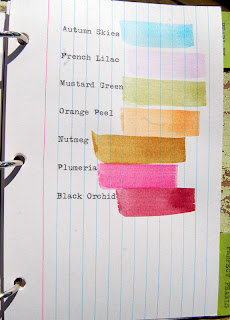 Autumn Skies
French Lilac
Mustard Green
Orange Peel
Nutmeg
Plumeria
Black Orchid